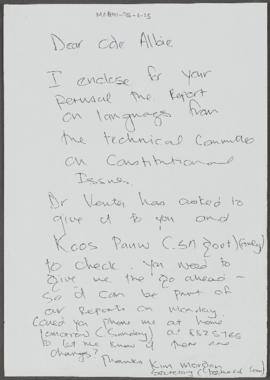 Dear Cde Albie
I enclose for your
perusal the Report
on language from
the technical Committee
on Constitutional
Issues.
Dr Venter has asked to
give it to you and
Koos Pauw (SA Govt)
to check. You need to
give me the go ahead -
so it can be part of
our Reports on Monday.
Could you phone me at home
tomorrow (Sunday) at
to let me know if there are
changes?
Thanks Kim Morgan
Secretary